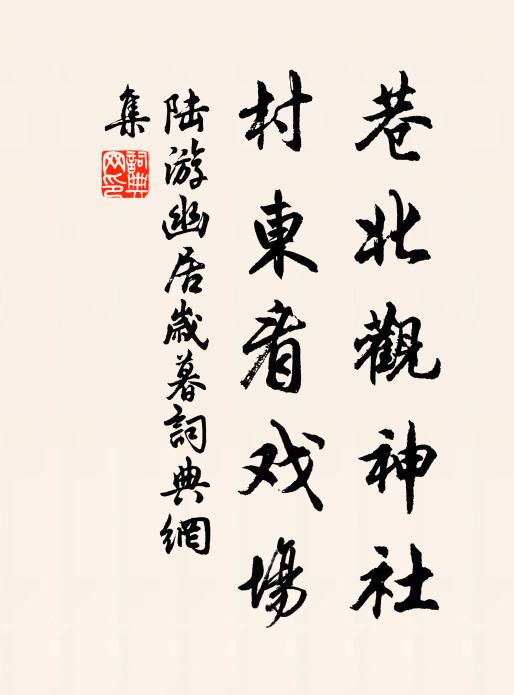 巷北觀神社
村東看戏場
陆游幽居歲暮詞典網
集
詞典
网印